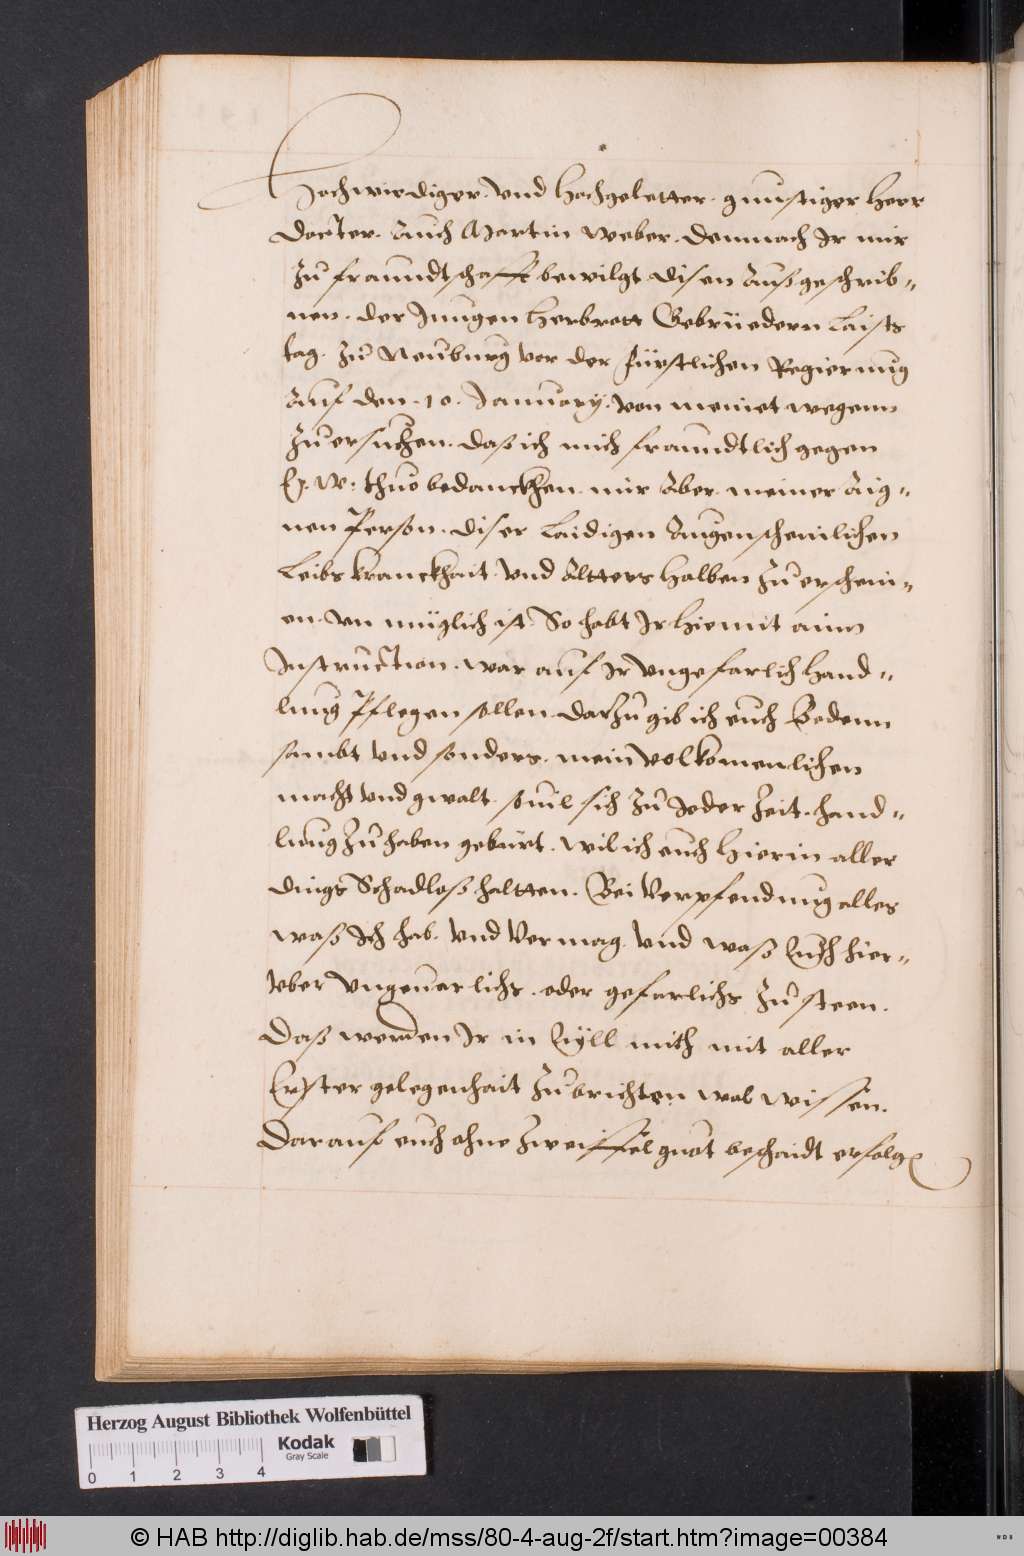 Hochwirdiger. Und Hochgeletter. gunstiger Herr
Docter. Auch Martin Weber. demnach Ir mir
Zu fraundtschafft bewilgt disen Außgeschrib-
nen. der Jungen Herbrott Gebrüedern Laists
tag. Zu Neuburg vor der fürstlichen Regierung
Auf den .10. January. von meinet wegenn
Zu ersuchen. daß ich mich fraundtlich gegen
E. W. thue bedanckhen. mir Aber. meiner Aig-
nen Person. diser Laidigen Augenscheinlichen
Leibs kranckhait. Und Altters halben Zu erschein-
en. Un müglich ist. So habt Ir hiemit ainn
Instruction. war auf Ir Ungefarlich hand-
lung Pflegen sollen. darzu gib ich euch Bedenn
sambt Und sonders. mein Volkomenlichen
macht Und gwalt. souil sich Zu Jeder Zeit. hand-
lung Zu haben geburt. wil ich euch hierin aller
dings Schadloß haltten. Bei Verpfendnung alles
waß Ich hab. Und Vermag. Und waß Euch hier-
Vber Vngeuerlichs. oder gefarlichs Zu steen.
Daß werden Ir in Eyll mich mit aller
Erster gelegenhait Zu brichten wol wissen.
Darauf euch ohne Zweiffel guot beschaidt erfolg
Herzog August Bibliothek Wolfenbüttel
Kodak
Gray Scale
0 1 2 3 4
© HAB http://diglib.hab.de/mss/80-4-aug-2f/start.htm?image=00384